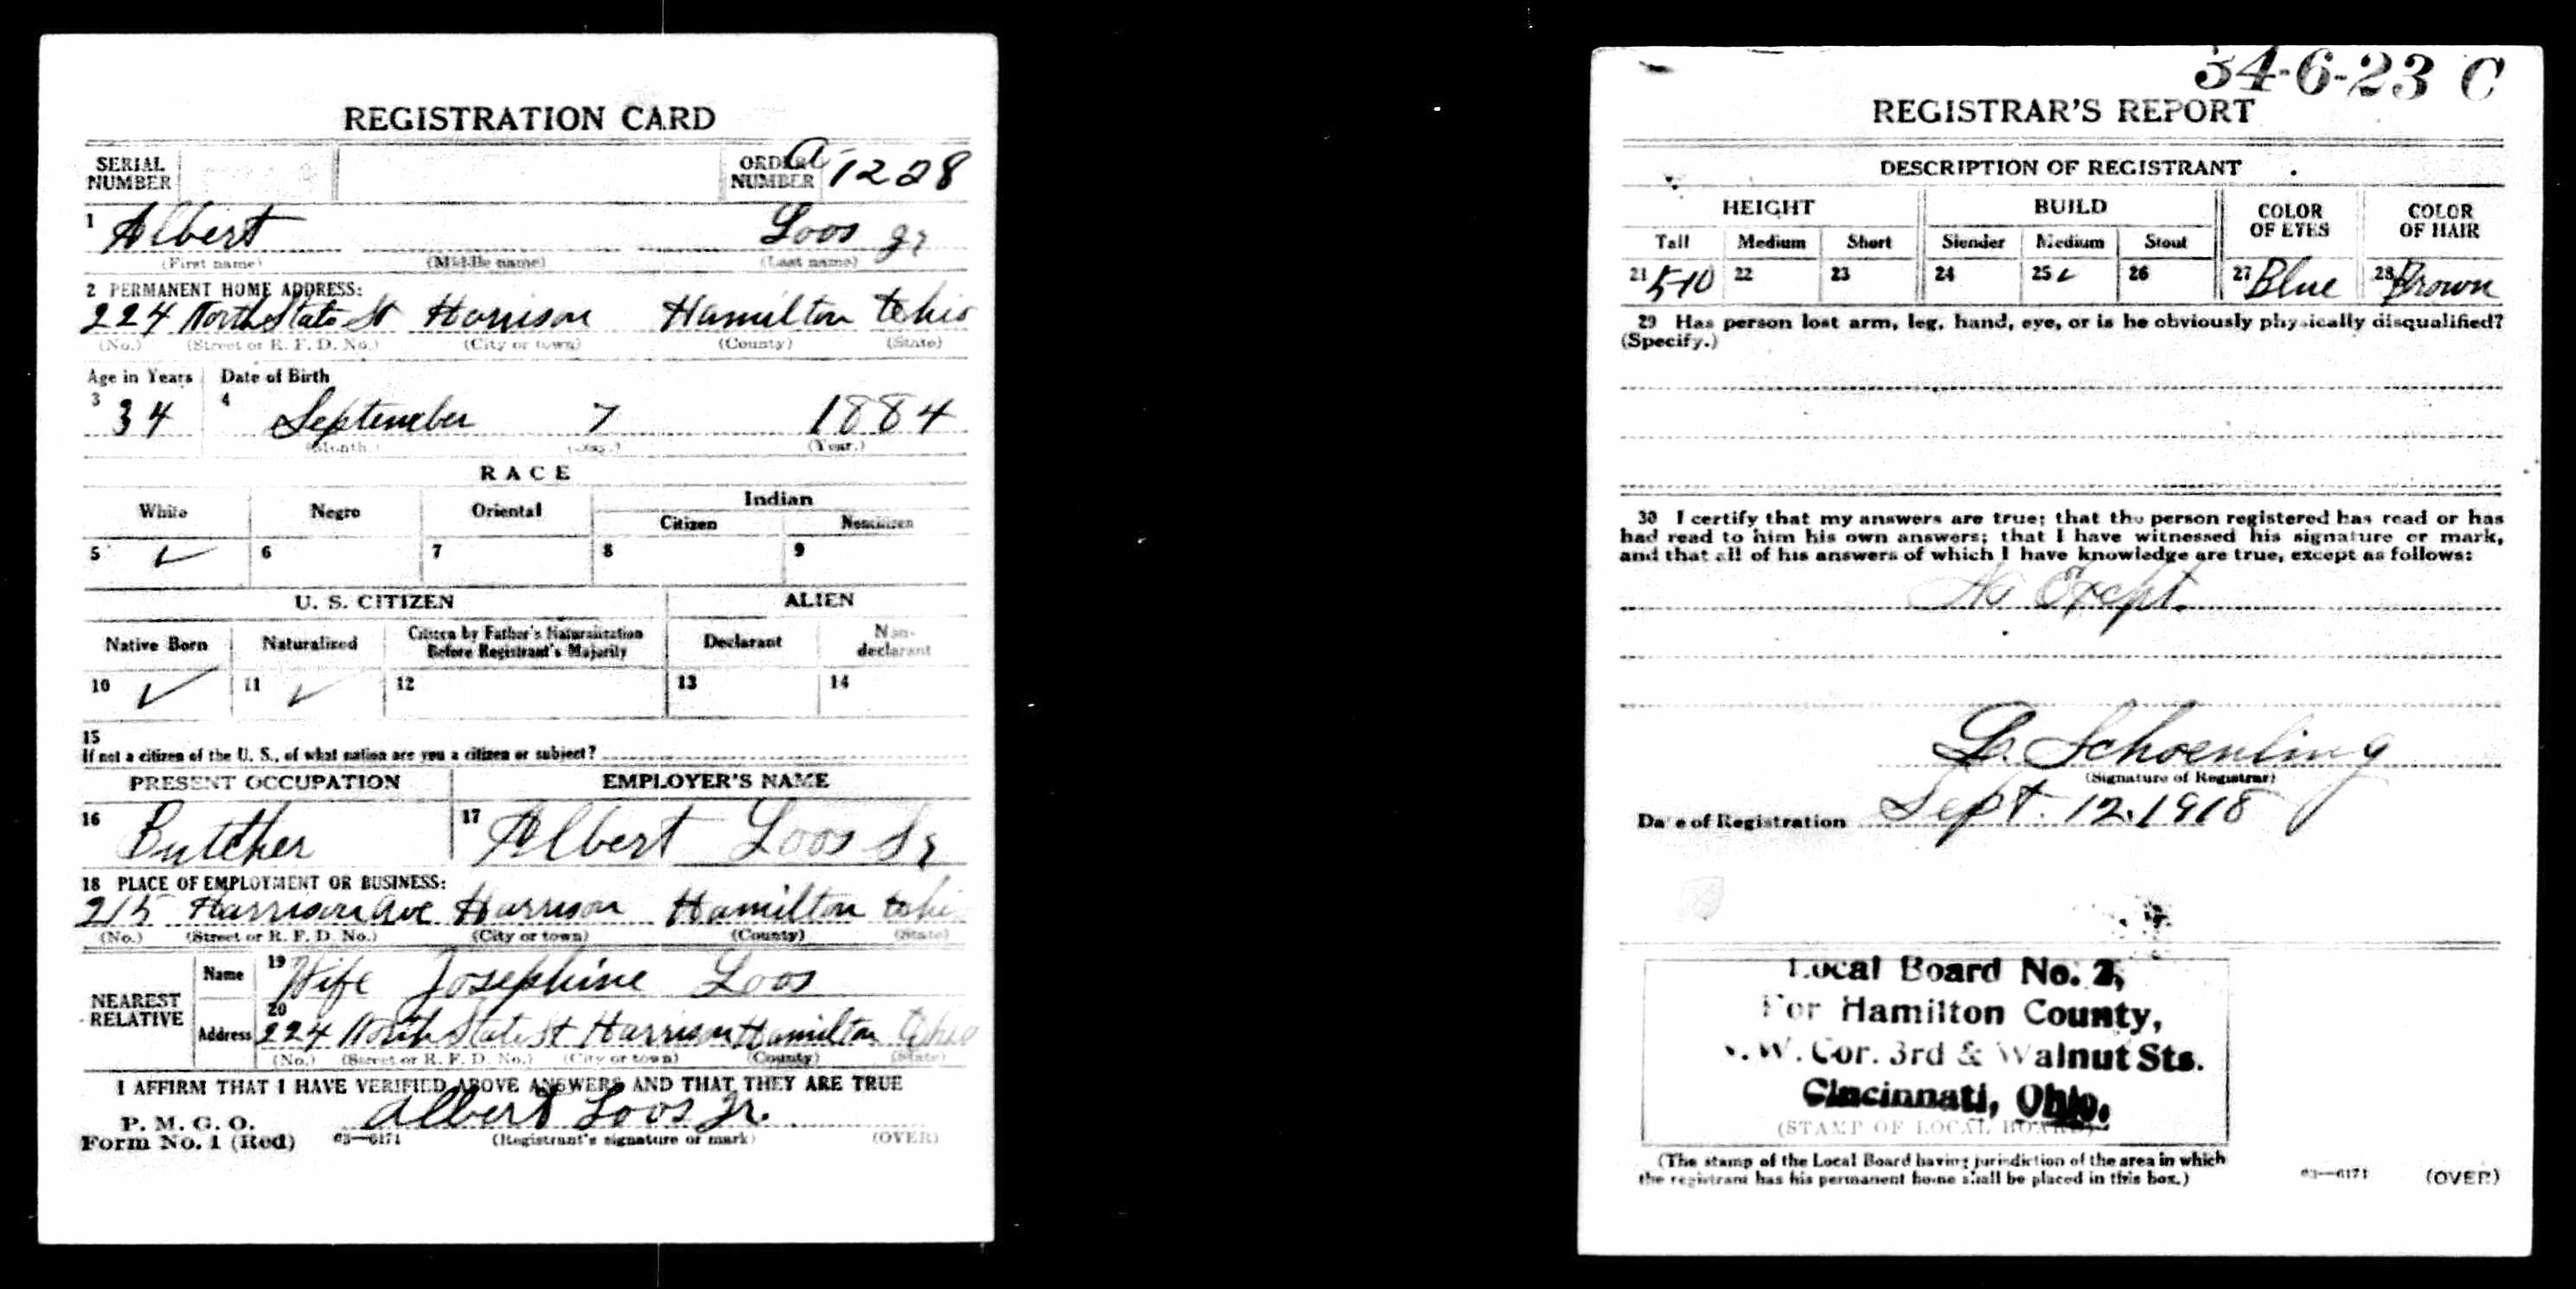 REGISTRATION CARD
SERIAL NUMBER
ORDER NUMBER A 1228
1 Albert Loos Jr
(First name) (Middle name) (Last name)
2 PERMANENT HOME ADDRESS:
224 North State St Harrison Hamilton Ohio
(No.) (Street or R. F. D. No.) (City or town) (County) (State)
Age in Years Date of Birth
3 34 4 September 7 1884
(Month.) (Day.) (Year.)
RACE
White Negro Oriental Indian
Citizen Noncitizen
5 ✓ 6 7 8 9
U. S. CITIZEN ALIEN
Native Born Naturalized Citizen by Father's Naturalization Before Registrant's Majority Declarant Non-declarant
10 ✓ 11 ✓ 12 13 14
15
If not a citizen of the U. S., of what nation are you a citizen or subject?
PRESENT OCCUPATION EMPLOYER'S NAME
16 Butcher 17 Albert Loos Sr
18 PLACE OF EMPLOYMENT OR BUSINESS:
215 Harrison Ave Harrison Hamilton Ohio
(No.) (Street or R. F. D. No.) (City or town) (County) (State)
NEAREST RELATIVE
Name 19 Wife Josephine Loos
Address 20 224 North State St Harrison Hamilton Ohio
(No.) (Street or R. F. D. No.) (City or town) (County) (State)
I AFFIRM THAT I HAVE VERIFIED ABOVE ANSWERS AND THAT THEY ARE TRUE
P. M. G. O.
Form No. 1 (Red) 03—6171 Albert Loos Jr.
(Registrant's signature or mark) (OVER)
34-6-23 C
REGISTRAR'S REPORT
DESCRIPTION OF REGISTRANT
HEIGHT BUILD COLOR OF EYES COLOR OF HAIR
Tall Medium Short Slender Medium Stout
21 5-10 22 23 24 25 ✓ 26 27 Blue 28 Brown
29 Has person lost arm, leg, hand, eye, or is he obviously physically disqualified?
(Specify.)
30 I certify that my answers are true; that the person registered has read or has
had read to him his own answers; that I have witnessed his signature or mark,
and that all of his answers of which I have knowledge are true, except as follows:
No Except.
L. Schoenling
(Signature of Registrar)
Date of Registration Sept. 12, 1918
Local Board No. 2,
For Hamilton County,
.W. Cor. 3rd & Walnut Sts.
Cincinnati, Ohio.
(STAMP OF LOCAL BOARD)
(The stamp of the Local Board having jurisdiction of the area in which
the registrant has his permanent home shall be placed in this box.)
03—6171 (OVER)